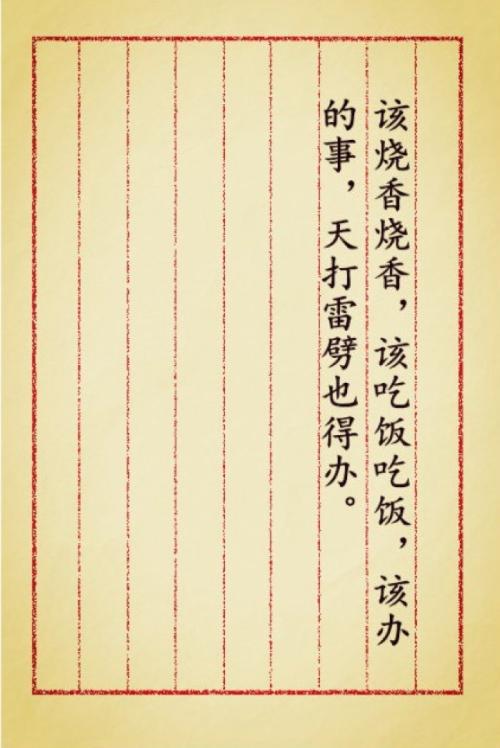 该烧香烧香，该吃饭吃饭，该办
的事，天打雷劈也得办。